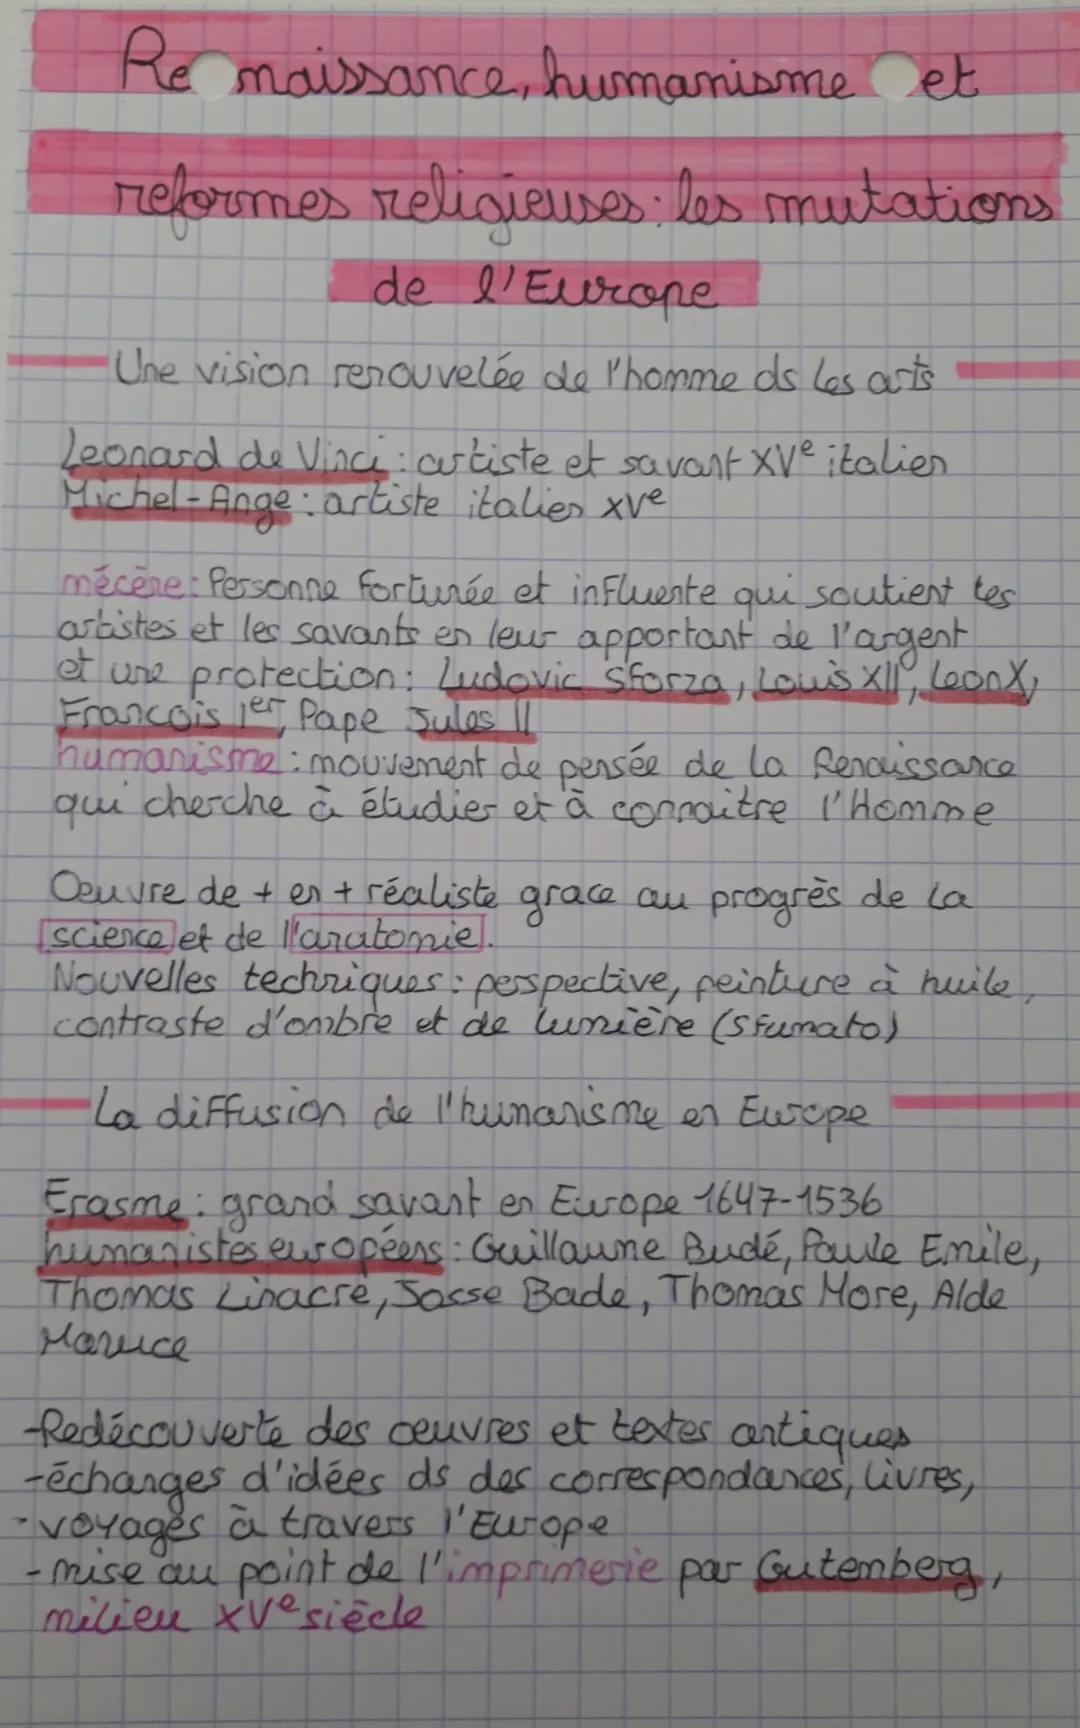 Renaissance, humanisme et
reformes religieuses: les mutations
de l'Europe
Une vision renouvelée de l'homme ds les arts
Leonard de Vinci : artiste et savant XVe italien
Michel-Ange : artiste italien XVe
mécène : Personne fortunée et influente qui soutient les
artistes et les savants en leur apportant de l'argent
et une protection : Ludovic Sforza, Louis XII, Leon X,
Francois 1er, Pape Jules II
humanisme : mouvement de pensée de la Renaissance
qui cherche à étudier et à connaitre l'Homme
Oeuvre de + en + réaliste grace au progrès de la
science et de l'anatomie.
Nouvelles techniques : perspective, peinture à huile,
contraste d'ombre et de lumière (sfumato)
La diffusion de l'humanisme en Europe
Erasme : grand savant en Europe 1647-1536
humanistes européens : Guillaume Budé, Paule Emile,
Thomas Linacre, Josse Bade, Thomas More, Alde
Manuce
-Redécouverte des œuvres et textes antiques
-échanges d'idées ds des correspondances, livres,
-voyages à travers l'Europe
-mise au point de l'imprimerie par Gutemberg,
milieu XVe siècle